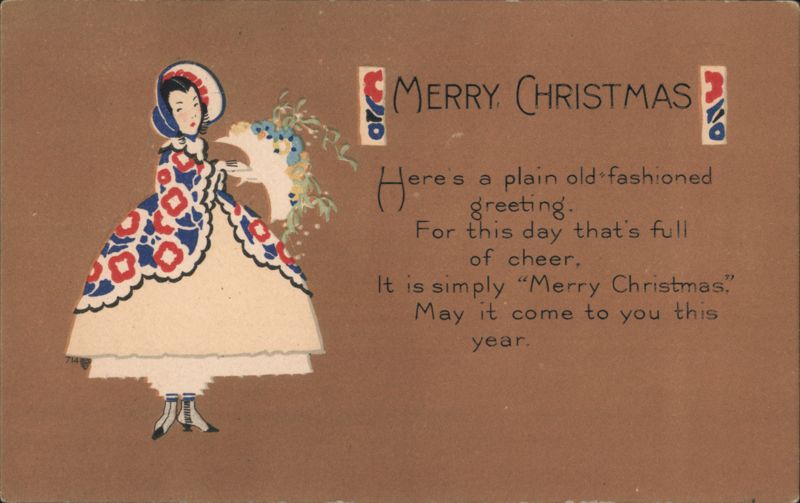 MERRY CHRISTMAS
Here's a plain old-fashioned
greeting.
For this day that's full
of cheer,
It is simply "Merry Christmas."
May it come to you this
year.
714